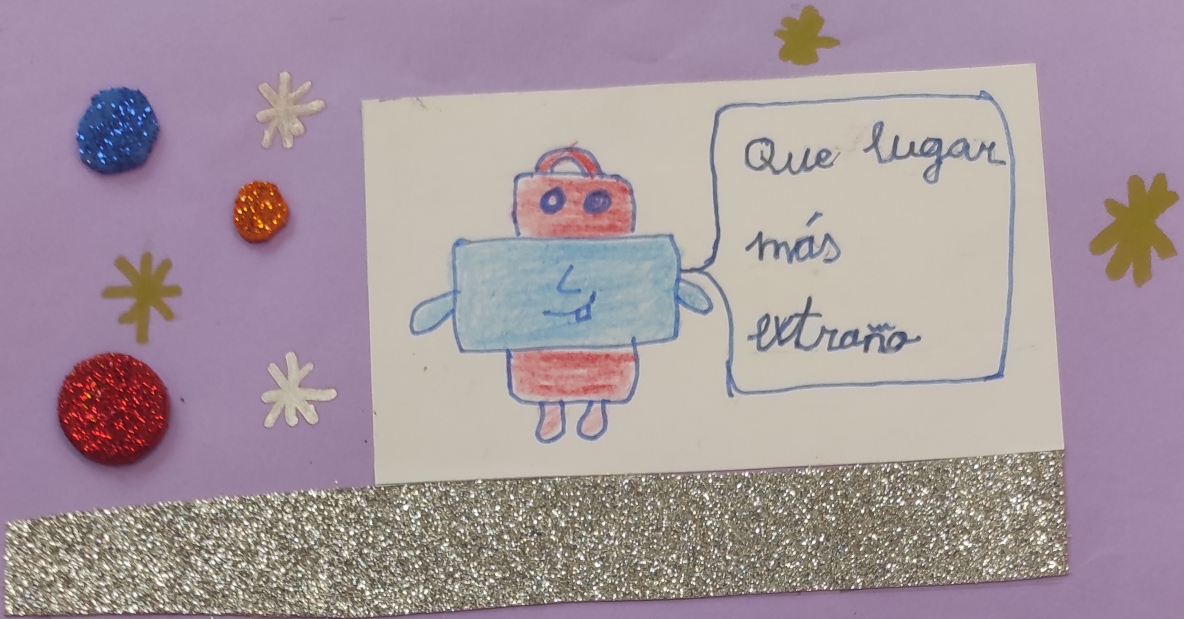 Que lugar
más
extraño